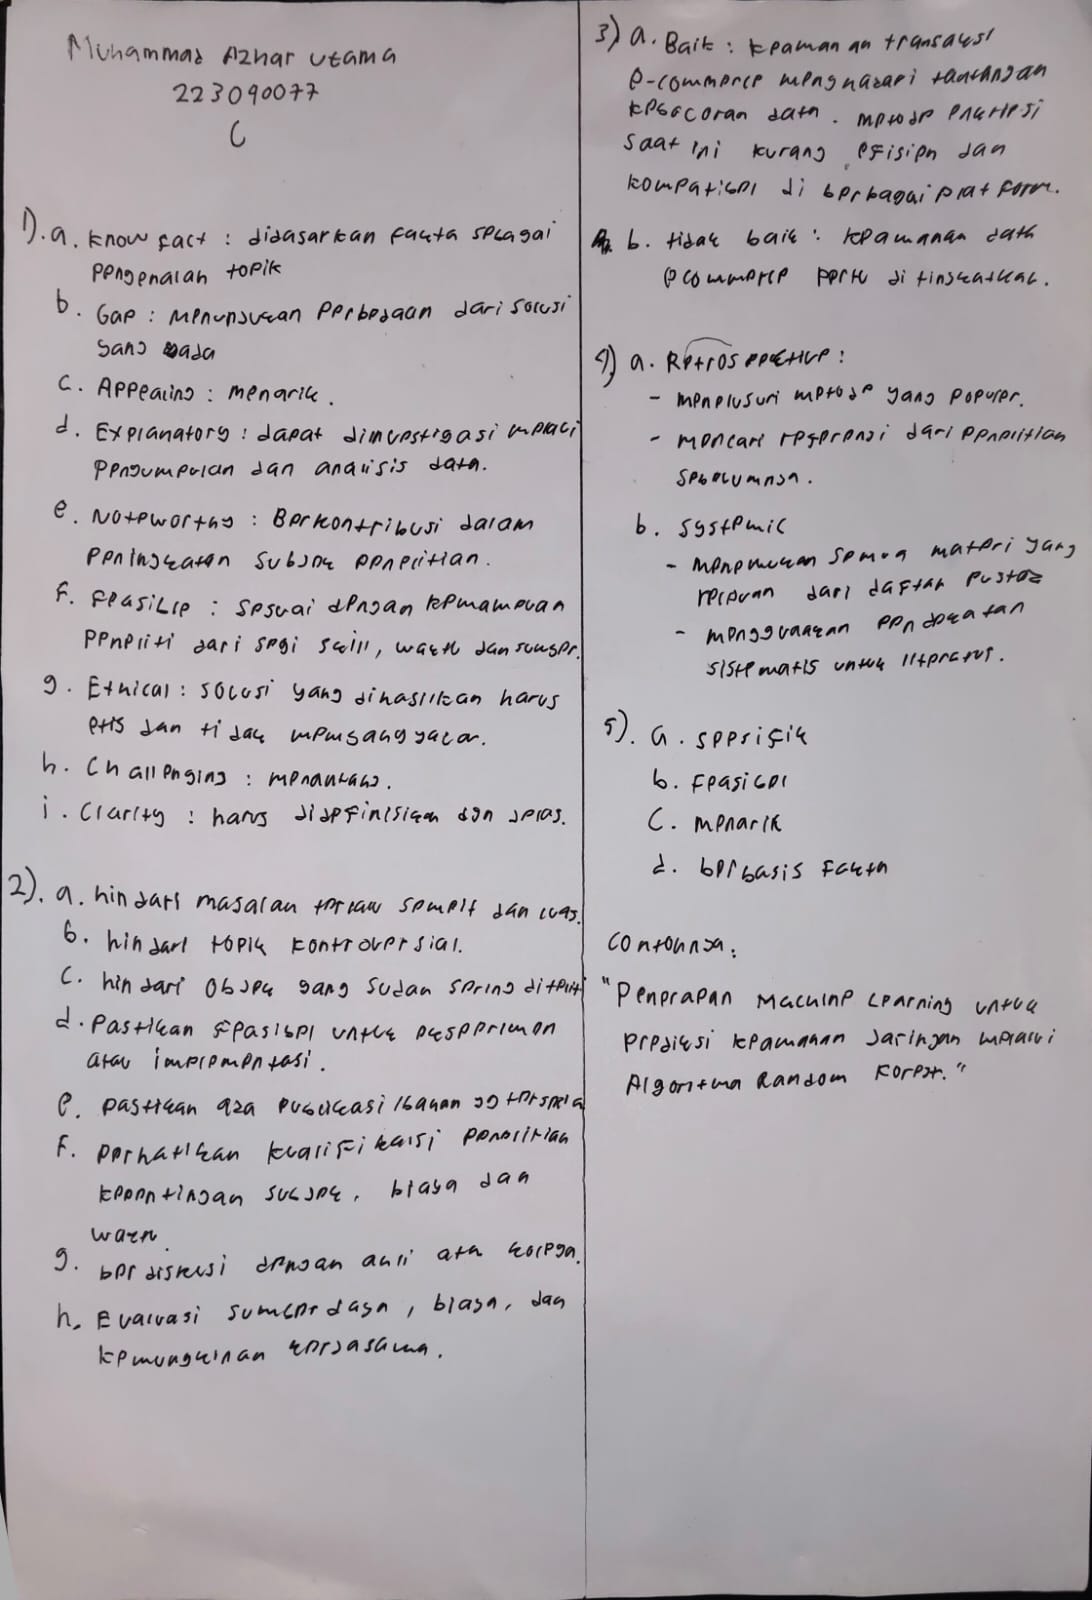 Muhammad Azhar Utama
223090077
C
1). a. Know fact : didasarkan fakta sebagai
pengenalan topik
b. Gap : menunjukkan perbedaan dari solusi
yang ada
c. Appealing : menarik.
d. Explanatory : dapat diinvestigasi melalui
pengumpulan dan analisis data.
e. Noteworthy : Berkontribusi dalam
peningkatan subjek penelitian.
f. Feasible : sesuai dengan kemampuan
peneliti dari segi skill, waktu dan sumber.
g. Ethical : solusi yang dihasilkan harus
etis dan tidak
h. Challenging : menantang.
i. Clarity : harus didefinisikan dgn jelas.
2). a. hindari masalah terlalu sempit dan luas.
b. hindari topik kontroversial.
c. hindari objek yang sudah sering diteliti
d. Pastikan feasibel untuk eksperimen
atau implementasi.
e. pastikan ada publikasi / bahan yg tersedia
f. perhatikan kualifikasi penelitian
kepentingan subjek, biaya dan
waktu
g. berdiskusi dengan ahli atau kolega.
h. Evaluasi sumber daya, biaya, dan
kemungkinan kerjasama.
3) a. Baik : keamanan transaksi
e-commerce menghadapi tantangan
kebocoran data. metode enkripsi
saat ini kurang efisien dan
kompatibel di berbagai platform.
b. tidak baik : keamanan data
ecommerce perlu ditingkatkan.
4) a. Retrospective :
- menelusuri metode yang populer.
- mencari referensi dari penelitian
sebelumnya.
b. systemic
- menemukan semua materi yang
relevan dari daftar pustaka
- menggunakan pendekatan
sistematis untuk literatur.
5). a. spesifik
b. feasibel
c. menarik
d. berbasis fakta
contohnya:
"Penerapan Machine Learning untuk
prediksi keamanan Jaringan melalui
Algoritma Random Forest."